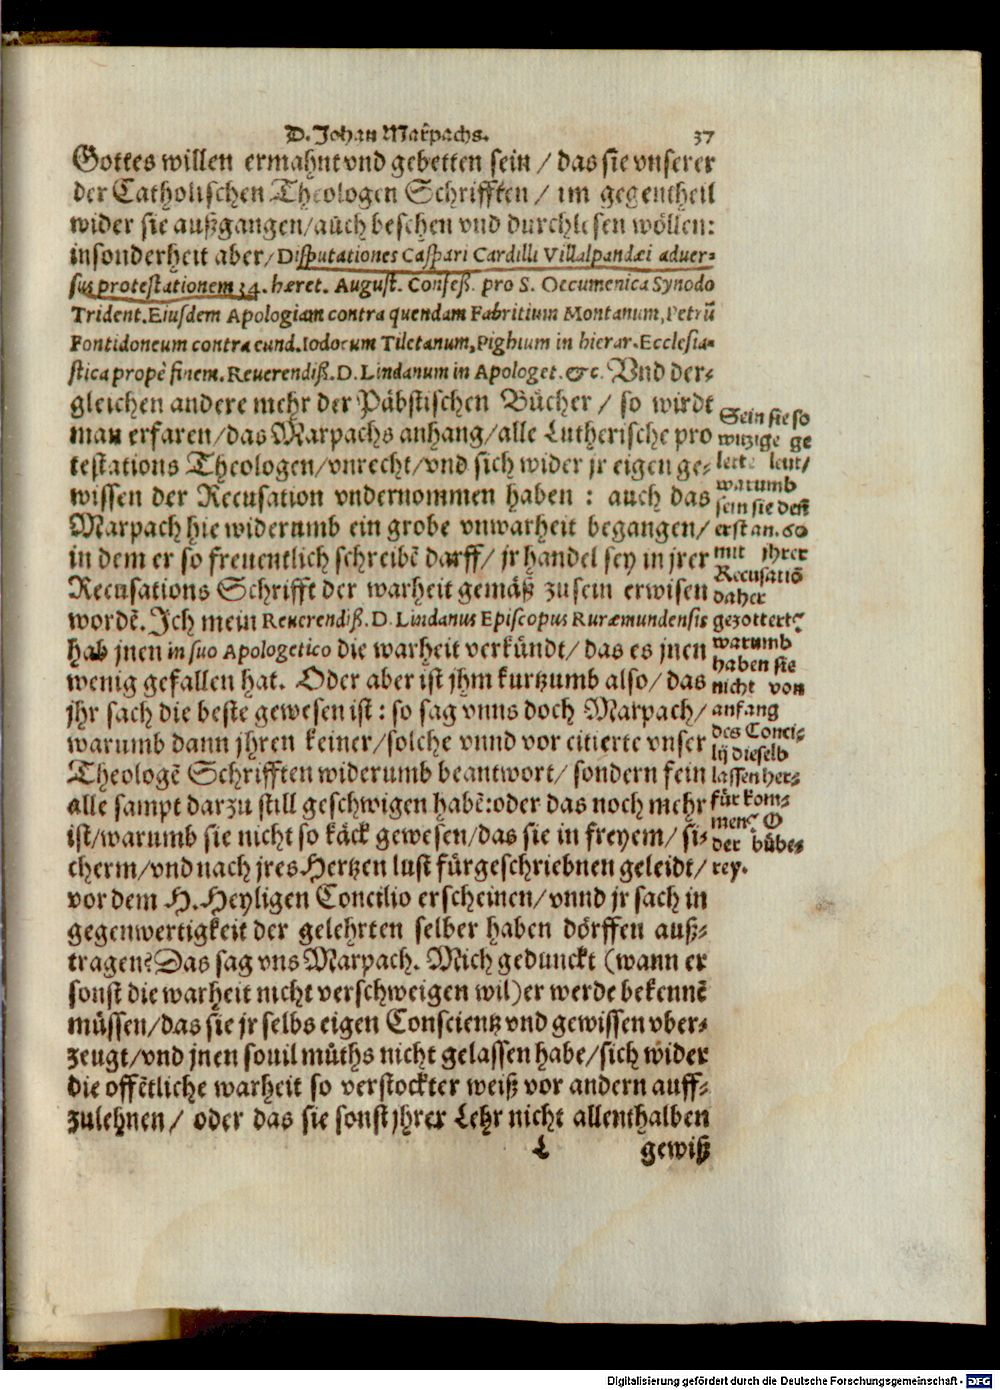 D. Johan Marpachs. 37
Gottes willen ermahnt vnd gebetten sein / das sie vnserer
der Catholischen Theologen Schrifften / im gegentheil
wider sie außgangen/auch besehen vnd durchlesen wöllen:
insonderheit aber/ Disputationes Caspari Cardilli Villalpandæi aduer-
sus protestationem 34. hæret. August. Confeß. pro S. Oecumenica Synodo
Trident. Eiusdem Apologiam contra quendam Fabritium Montanum, Petrũ
Fontidoneum contra eund. Iodocum Tiletanum, Pighium in hierar. Ecclesia-
stica propè finem. Reuerendiß. D. Lindanum in Apologet. &c. Vnd der-
gleichen andere mehr der Päbstischen Bücher / so wirdt
man erfaren/das Marpachs anhang/alle Lutherische pro
testations Theologen/vnrecht/vnd sich wider jr eigen ge-
wissen der Recusation vndernommen haben : auch das
Marpach hie widerumb ein grobe vnwarheit begangen/
in dem er so freuentlich schreibẽ darff/ jr handel sey in jrer
Recusations Schrifft der warheit gemäß zusein erwisen
wordẽ. Ich mein Reuerendiß. D. Lindanus Episcopus Ruræmundensis
hab jnen in suo Apologetico die warheit verkündt/ das es jnen
wenig gefallen hat. Oder aber ist jhm kurtzumb also/ das
jhr sach die beste gewesen ist : so sag vnns doch Marpach/
warumb dann jhren keiner/solche vnnd vor citierte vnser
Theologẽ Schrifften widerumb beantwort/ sondern fein
alle sampt darzu still geschwigen habẽ:oder das noch mehr
ist/warumb sie nicht so käck gewesen/das sie in freyem/ si-
cherm/vnd nach jres Hertzen lust fürgeschriebnen geleidt/
vor dem H. Heyligen Concilio erscheinen/ vnnd jr sach in
gegenwertigkeit der gelehrten selber haben dörffen auß-
tragen? Das sag vns Marpach. Mich gedunckt (wann er
sonst die warheit nicht verschweigen wil) er werde bekennẽ
müssen/das sie jr selbs eigen Conscientz vnd gewissen vber-
zeugt/vnd jnen souil müths nicht gelassen habe/sich wider
die offẽtliche warheit so verstockter weiß vor andern auff-
zulehnen/ oder das sie sonst jhrer Lehr nicht allenthalben
L gewiß
Sein sie so
witzige ge
lerte leut/
warumb
sein sie deñ
erst an. 60
mit jhrer
Recusatiõ
daher
gezottert?
warumb
haben sie
nicht von
anfang
des Conci-
lij dieselb
lassen her-
für kom-
men? O
der bübe-
rey.
Digitalisierung gefördert durch die Deutsche Forschungsgemeinschaft - DFG